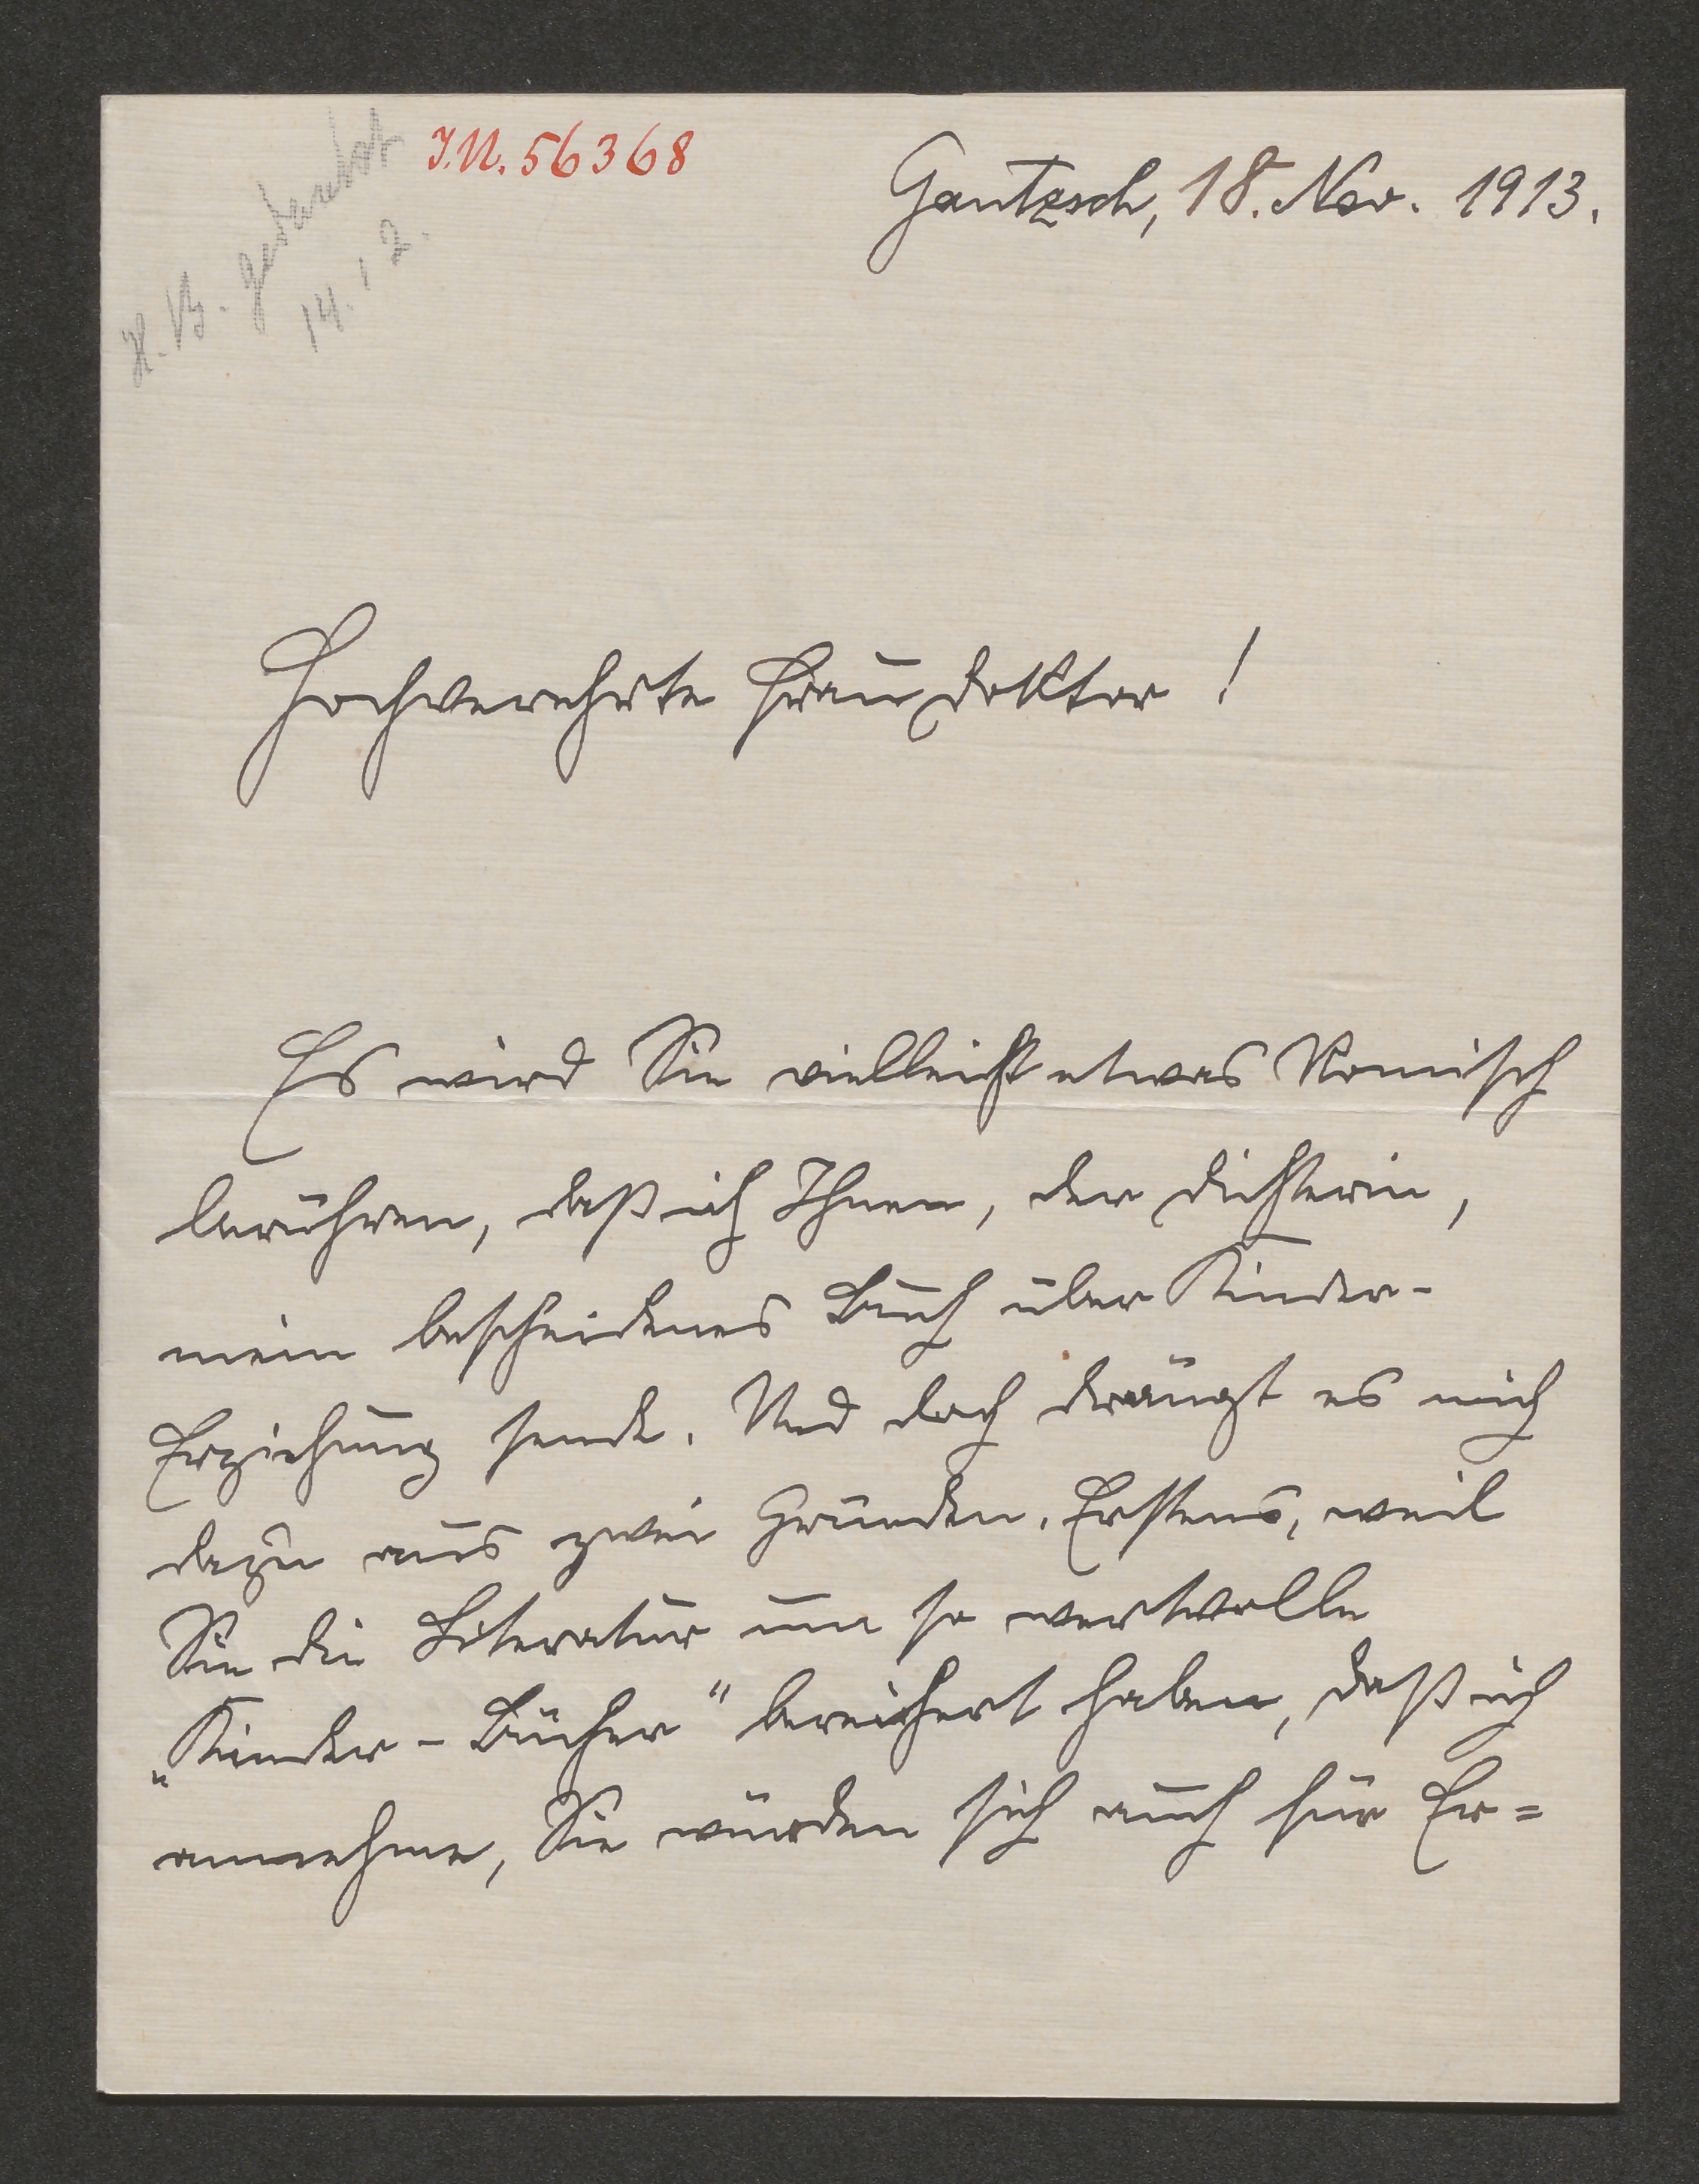 H. B. gedankt
14.12.
I.N. 56368
Gautzsch, 18. Nov. 1913.
Hochverehrte Frau Doktor!
Es wird Sie vielleicht etwas komisch
berühren, daß ich Ihnen, der Dichterin,
mein bescheidenes Buch über Kinder-
Erziehung sende. Und doch drängt es mich
dazu aus zwei Gründen. Erstens, weil
Sie die Literatur um so wertvolle
„Kinder-Bücher" bereichert haben, daß ich
annehme, Sie würden sich auch für Er=